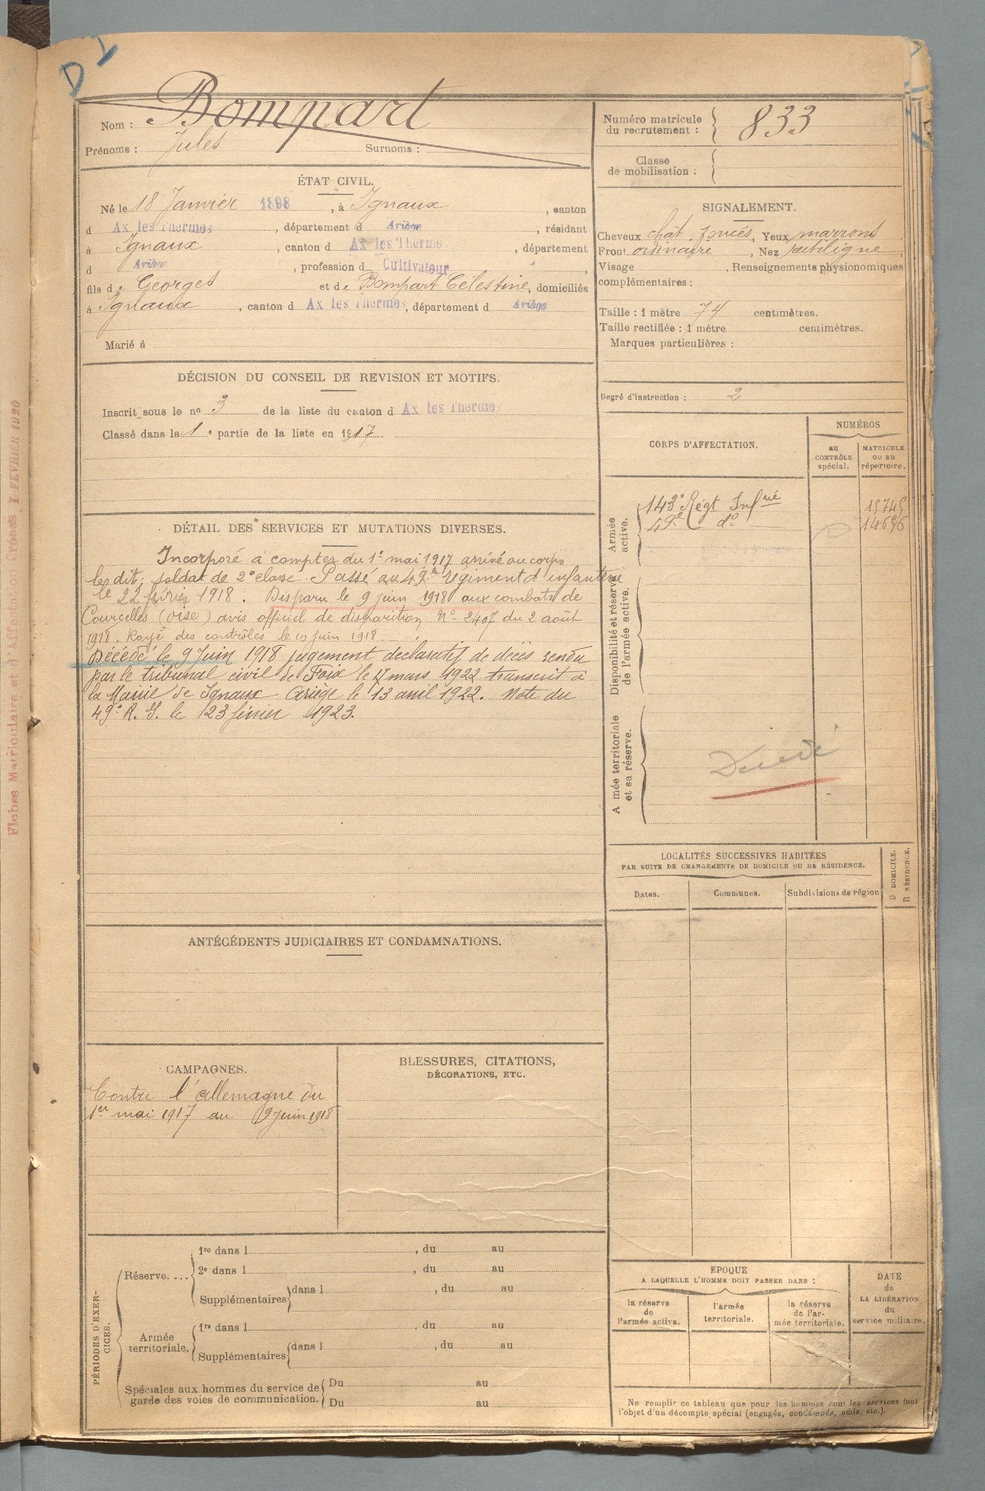 D 1
Nom : Bompart
Prénoms : Jules Surnoms :
ÉTAT CIVIL.
Né le 18 Janvier 1898, à Ignaux, canton
d Ax les Thermes, département d Ariège, résidant
à Ignaux, canton d Ax les Thermes, département
d Ariège, profession d Cultivateur,
fils de Georges et de Bompart Célestine, domiciliés
à Ignaux, canton d Ax les Thermes, département d Ariège
Marié à
DÉCISION DU CONSEIL DE REVISION ET MOTIFS.
Inscrit sous le no 3 de la liste du canton d Ax les Thermes
Classé dans la 1e partie de la liste en 1917
DÉTAIL DES SERVICES ET MUTATIONS DIVERSES.
Incorporé à compter du 1er mai 1917 arrivé au corps
le dit, soldat de 2e classe. Passé au 49e régiment d'infanterie
le 22 février 1918. Disparu le 9 juin 1918 aux combats de
Courcelles (oise) avis officiel de disparition No 2407 du 2 août
1918. Rayé des contrôles le 10 juin 1918.
Décédé le 9 Juin 1918 jugement déclaratif de décès rendu
par le tribunal civil de Foix le mars 1922 transcrit à
la Mairie de Ignaux Ariège le 13 avril 1922. Note du
49e R. I. le 23 février 1923.
ANTÉCÉDENTS JUDICIAIRES ET CONDAMNATIONS.
CAMPAGNES.
Contre l'allemagne du
1er mai 1917 au 9 juin 1918
BLESSURES, CITATIONS,
DÉCORATIONS, ETC.
PÉRIODES D'EXER-
CICES.
Réserve....
1re dans l , du au
2e dans l , du au
Supplémentaires dans l , du au
Armée
territoriale.
1re dans l , du au
Supplémentaires dans l , du au
Spéciales aux hommes du service de
garde des voies de communication.
Du au
Du au
Numéro matricule
du recrutement : 833
Classe
de mobilisation :
SIGNALEMENT.
Cheveux chat. foncés, Yeux marrons
Front ordinaire, Nez rectiligne,
Visage , Renseignements physionomiques
complémentaires :
Taille : 1 mètre 74 centimètres.
Taille rectifiée : 1 mètre centimètres.
Marques particulières :
Degré d'instruction : 2
CORPS D'AFFECTATION.
NUMÉROS
au
CONTRÔLE
spécial.
MATRICULE
OU AU
répertoire.
Armée
active.
143e Régt Infrie
49e do 14696
Disponibilité et réserve
de l'armée active.
Armée territoriale
et sa réserve.
Décédé
LOCALITÉS SUCCESSIVES HABITÉES
PAR SUITE DE CHANGEMENTS DE DOMICILE OU DE RÉSIDENCE.
Dates. Communes. Subdivisions de région
D DOMICILE.
R RÉSIDENCE.
EPOQUE
A LAQUELLE L'HOMME DOIT PASSER DANS :
la réserve
de
l'armée active.
l'armée
territoriale.
la réserve
de l'ar-
mée territoriale.
DATE
de
LA LIBÉRATION
du
service militaire.
Ne remplir ce tableau que pour les hommes dont les services font
l'objet d'un décompte spécial (engagés, condamnés, omis, etc.).
Fiches Matriculaire et d'Affectation Créées 1 FEVRIER 1920